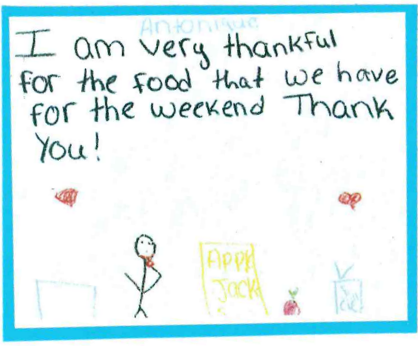 Antonique
I am very thankful
for the food that we have
for the weekend Thank
You!
APPle
JACK
S